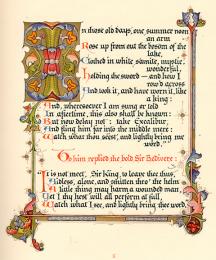 In those old days, one summer noon
an arm
Rose up from out the bosom of the
lake,
Clothed in white samite, mystic,
wonderful,
Holding the sword — and how I
row'd across
And took it, and have worn it, like
a king:
And, wheresoever I am sung or told
In aftertime, this also shall be known:
But now delay not: take Excalibur,
And fling him far into the middle mere:
Watch what thou seëst, and lightly bring me
word."
To him replied the bold Sir Bedivere:
"It is not meet, Sir King, to leave thee thus,
Aidless, alone, and smitten thro' the helm
A little thing may harm a wounded man,
Yet I thy hest will all perform at full,
Watch what I see, and lightly bring thee word."